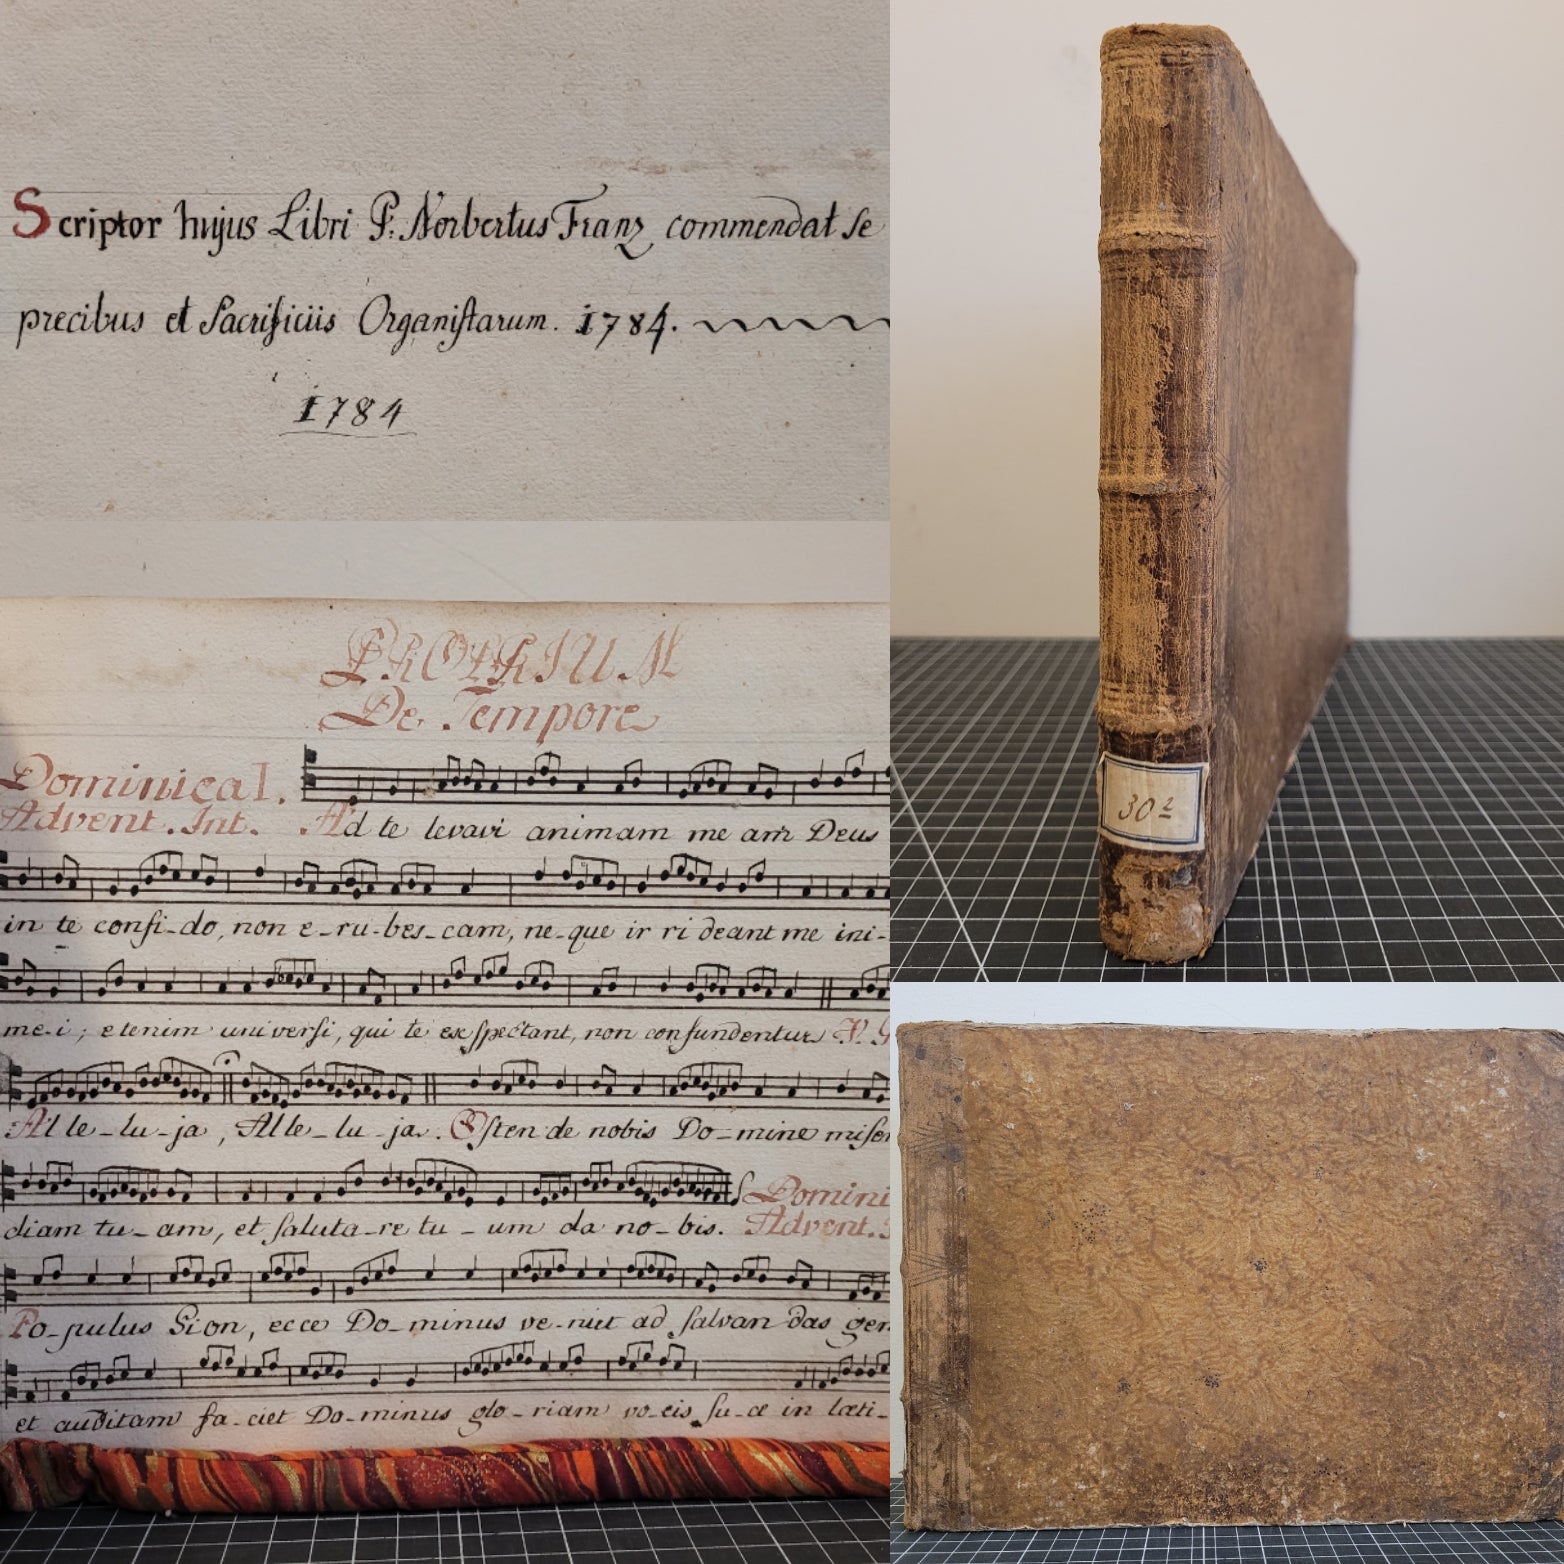 Scriptor hujus Libri P: Norbertus Franz commendat se
precibus et Sacrificiis Organistarum. 1784.
1784
PROPRIUM
De Tempore
Dominica I.
Advent. Int. Ad te levavi animam me am Deus
in te confi-do, non e-ru-bes-cam, ne-que ir ri deant me ini-
me-i; etenim universi, qui te exspectant, non confundentur V. G
Al le-lu-ja, Alle-lu-ja. Osten de nobis Do-mine miser
Domini
diam tu-am, et saluta-re tu-um da no-bis. Advent.
Po-pulus Sion, ecce Do-minus ve-niet ad salvan das gen
et auditam fa-ciet Do-minus glo-riam vo-cis su-æ in læti-
30 2